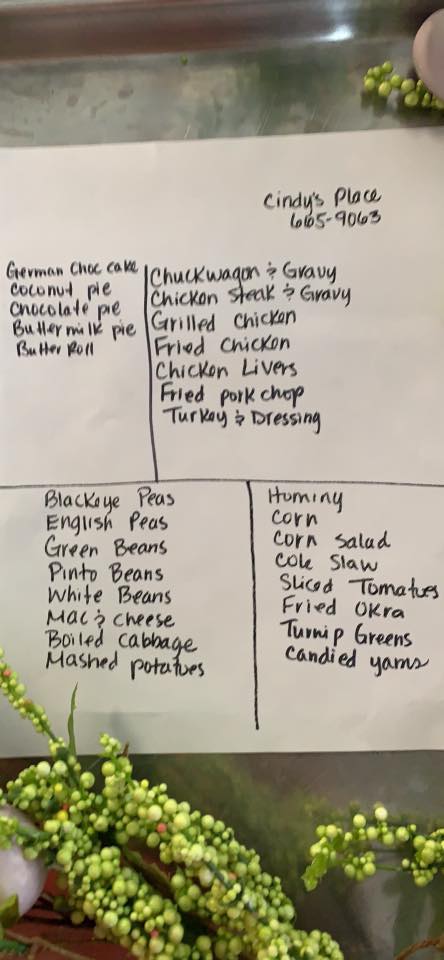 Cindy's Place
665-9063
German Choc cake
Coconut pie
Chocolate pie
Buttermilk pie
Butter Roll
Chuckwagon & Gravy
Chicken Steak & Gravy
Grilled Chicken
Fried Chicken
Chicken Livers
Fried pork chop
Turkey & Dressing
Blackeye Peas
English Peas
Green Beans
Pinto Beans
White Beans
Mac & cheese
Boiled Cabbage
Mashed potatoes
Hominy
Corn
Corn Salad
Cole Slaw
Sliced Tomatoes
Fried Okra
Turnip Greens
Candied yams